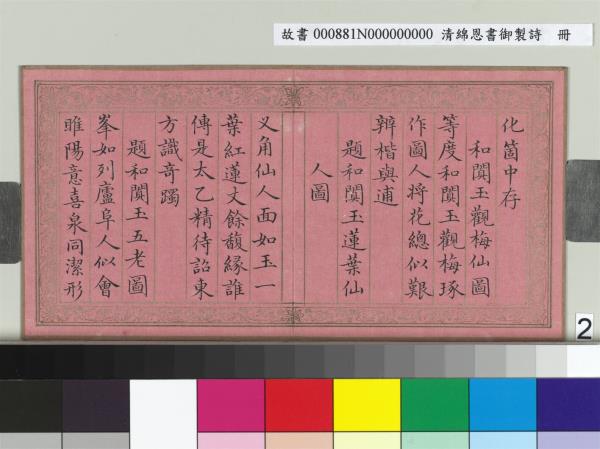 故書 000881N000000000 清綿恩書御製詩 冊
化箇中存
和闐玉觀梅仙圖
等度和闐玉觀梅琢
作圖人將花總似艱
辨楷與逋
題和闐玉蓮葉仙
人圖
义角仙人面如玉一
葉紅蓮丈餘馥緣誰
傳是太乙精待詔東
方識奇躅
題和闐玉五老圖
峯如列廬阜人似會
睢陽意喜泉同潔形
2